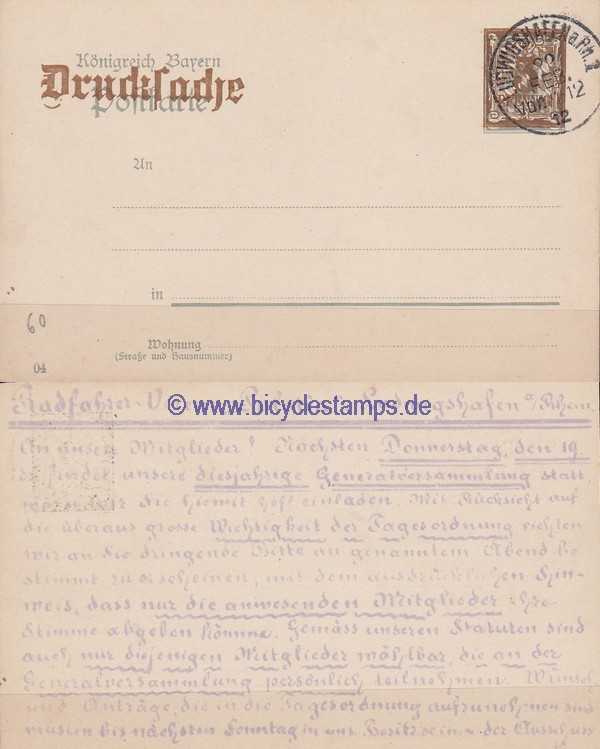 Königreich Bayern
Drucksache
Postkarte
LUDWIGSHAFEN a. Rh. 1
20
FEB.
Vor. 12
12
An
in
60
Wohnung
(Straße und Hausnummer)
04
© www.bicyclestamps.de
Radfahrer-V Ludwigshafen a/Rhein
An unsere Mitglieder! Nächsten Donnerstag, den 19
findet unsere diesjährige Generalversammlung statt
die hiemit höfl. einladen. Mit Rücksicht auf
die überaus grosse Wichtigkeit der Tagesordnung richten
wir an die dringende Bitte an genanntem Abend be
stimmt zu erscheinen, mit dem ausdrücklichen Hin-
weis, dass nur die anwesenden Mitglieder ihre
Stimme abgeben können. Gemäss unseren Statuten sind
auch nur diejenigen Mitglieder wählbar, die an der
Generalversammlung persönlich teilnehmen. Wünsche
und Anträge, die in die Tagesordnung aufzunehmen sind
müssen bis nächsten Sonntag in uns. Besitz sein. der Ausschuss